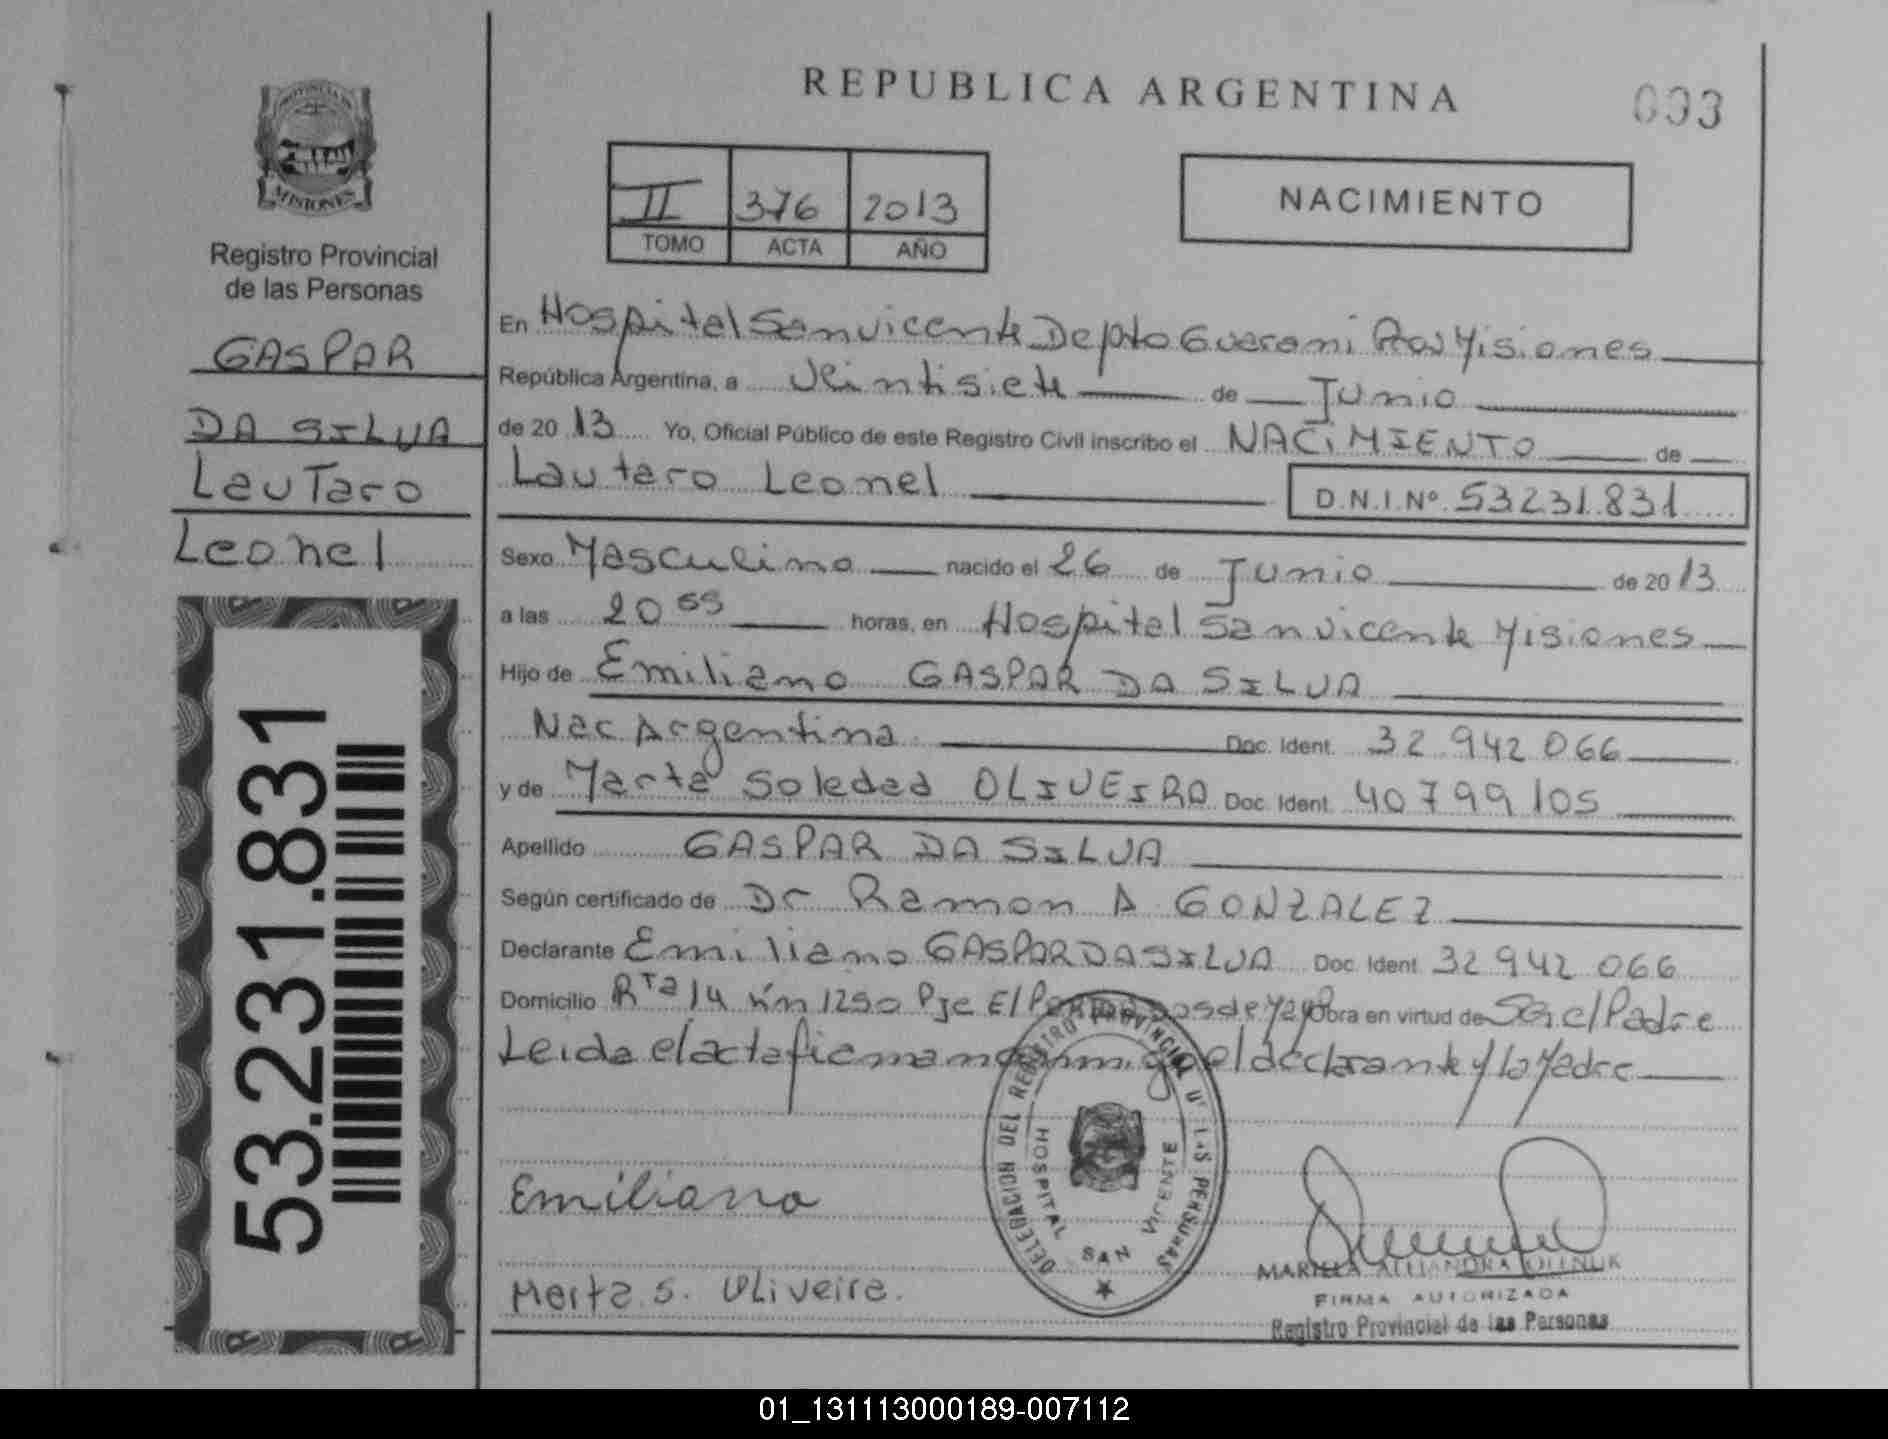 REPUBLICA ARGENTINA
093
PROVINCIA DE
MISIONES
Registro Provincial
de las Personas
GASPAR
DA SILVA
Lautaro
Leonel
53.231.831
II 376 2013
TOMO ACTA AÑO
NACIMIENTO
En Hospital San Vicente Depto Guarani Misiones
República Argentina, a Veintisiete de Junio
de 20 13 Yo, Oficial Público de este Registro Civil inscribo el NACIMIENTO de
Lautaro Leonel D.N.I.Nº 53231.831
Sexo Masculino nacido el 26 de Junio de 20 13
a las 20 55 horas, en Hospital San Vicente Misiones
Hijo de Emiliano GASPAR DA SILVA
Nac Argentina Doc. Ident. 32 942 066
y de Marta Soledad OLIVEIRA Doc. Ident. 40 799 105
Apellido GASPAR DA SILVA
Según certificado de Dr Ramon A GONZALEZ
Declarante Emiliano GASPAR DA SILVA Doc. Ident. 32 942 066
Domicilio Rta 14 km 1250 Pje El 2 de Mayo Obra en virtud de Ser el Padre
Leida el acta firman conmigo el declarante y la Madre
DELEGACION DEL REGISTRO PROVINCIAL DE LAS PERSONAS
HOSPITAL SAN VICENTE
Emiliano
Marta S. Oliveira.
MARIELA ALEJANDRA OLENUK
FIRMA AUTORIZADA
Registro Provincial de las Personas
01_131113000189-007112